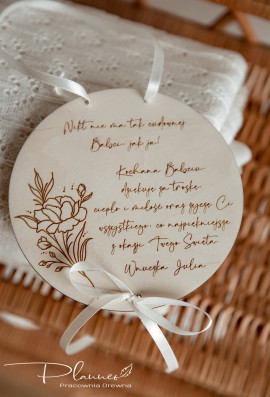 Nikt nie ma tak cudownej
Babci jak ja!
Kochana Babciu
dziękuję za troskę
ciepło i miłość oraz życzę Ci
wszystkiego co najpiękniejsze
z okazji Twego Święta
Wnuczka Julia
Planneo
Pracownia Drewna